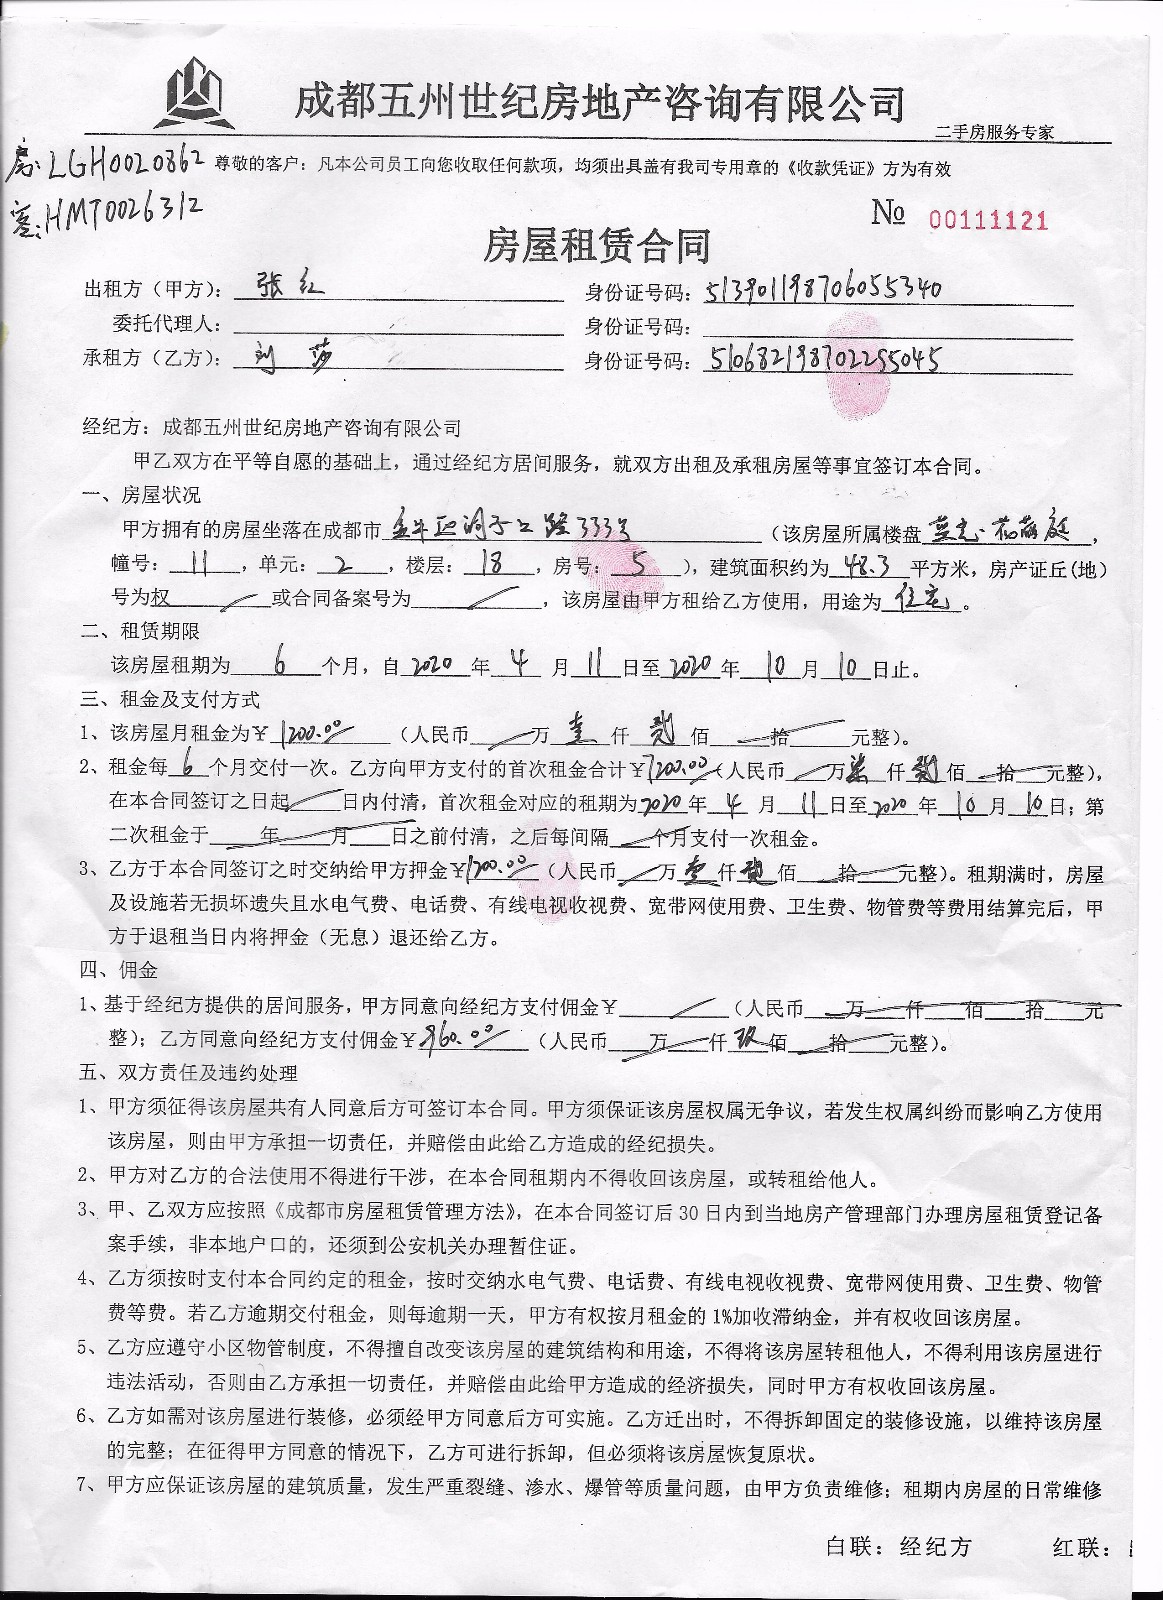 成都五州世纪房地产咨询有限公司
二手房服务专家
房:LGH0020862
尊敬的客户：凡本公司员工向您收取任何款项，均须出具盖有我司专用章的《收款凭证》方为有效
客:HMT0026312
№ 00111121
房屋租赁合同
出租方（甲方）：张红 身份证号码：513901198706055340
委托代理人： 身份证号码：
承租方（乙方）：刘莎 身份证号码：510682198702255045
经纪方：成都五州世纪房地产咨询有限公司
甲乙双方在平等自愿的基础上，通过经纪方居间服务，就双方出租及承租房屋等事宜签订本合同。
一、房屋状况
甲方拥有的房屋坐落在成都市金牛区洞子口路333号（该房屋所属楼盘蓝光·花满庭，
幢号：11，单元：2，楼层：18，房号：5），建筑面积约为48.3平方米，房产证丘(地)
号为权 或合同备案号为 ，该房屋由甲方租给乙方使用，用途为住宅。
二、租赁期限
该房屋租期为6个月，自2020年4月11日至2020年10月10日止。
三、租金及支付方式
1、该房屋月租金为￥1200.00（人民币 万壹仟贰佰 拾 元整）。
2、租金每6个月交付一次。乙方向甲方支付的首次租金合计￥7200.00（人民币 万柒仟贰佰 拾 元整），
在本合同签订之日起 日内付清，首次租金对应的租期为2020年4月11日至2020年10月10日；第
二次租金于 年 月 日之前付清，之后每间隔 个月支付一次租金。
3、乙方于本合同签订之时交纳给甲方押金￥1200.00（人民币 万壹仟贰佰 拾 元整）。租期满时，房屋
及设施若无损坏遗失且水电气费、电话费、有线电视收视费、宽带网使用费、卫生费、物管费等费用结算完后，甲
方于退租当日内将押金（无息）退还给乙方。
四、佣金
1、基于经纪方提供的居间服务，甲方同意向经纪方支付佣金￥ （人民币 万 仟 佰 拾 元
整）；乙方同意向经纪方支付佣金￥960.00（人民币 万 仟玖佰 拾 元整）。
五、双方责任及违约处理
1、甲方须征得该房屋共有人同意后方可签订本合同。甲方须保证该房屋权属无争议，若发生权属纠纷而影响乙方使用
该房屋，则由甲方承担一切责任，并赔偿由此给乙方造成的经纪损失。
2、甲方对乙方的合法使用不得进行干涉，在本合同租期内不得收回该房屋，或转租给他人。
3、甲、乙双方应按照《成都市房屋租赁管理方法》，在本合同签订后30日内到当地房产管理部门办理房屋租赁登记备
案手续，非本地户口的，还须到公安机关办理暂住证。
4、乙方须按时支付本合同约定的租金，按时交纳水电气费、电话费、有线电视收视费、宽带网使用费、卫生费、物管
费等费。若乙方逾期交付租金，则每逾期一天，甲方有权按月租金的1%加收滞纳金，并有权收回该房屋。
5、乙方应遵守小区物管制度，不得擅自改变该房屋的建筑结构和用途，不得将该房屋转租他人，不得利用该房屋进行
违法活动，否则由乙方承担一切责任，并赔偿由此给甲方造成的经济损失，同时甲方有权收回该房屋。
6、乙方如需对该房屋进行装修，必须经甲方同意后方可实施。乙方迁出时，不得拆卸固定的装修设施，以维持该房屋
的完整；在征得甲方同意的情况下，乙方可进行拆卸，但必须将该房屋恢复原状。
7、甲方应保证该房屋的建筑质量，发生严重裂缝、渗水、爆管等质量问题，由甲方负责维修；租期内房屋的日常维修
白联：经纪方 红联：